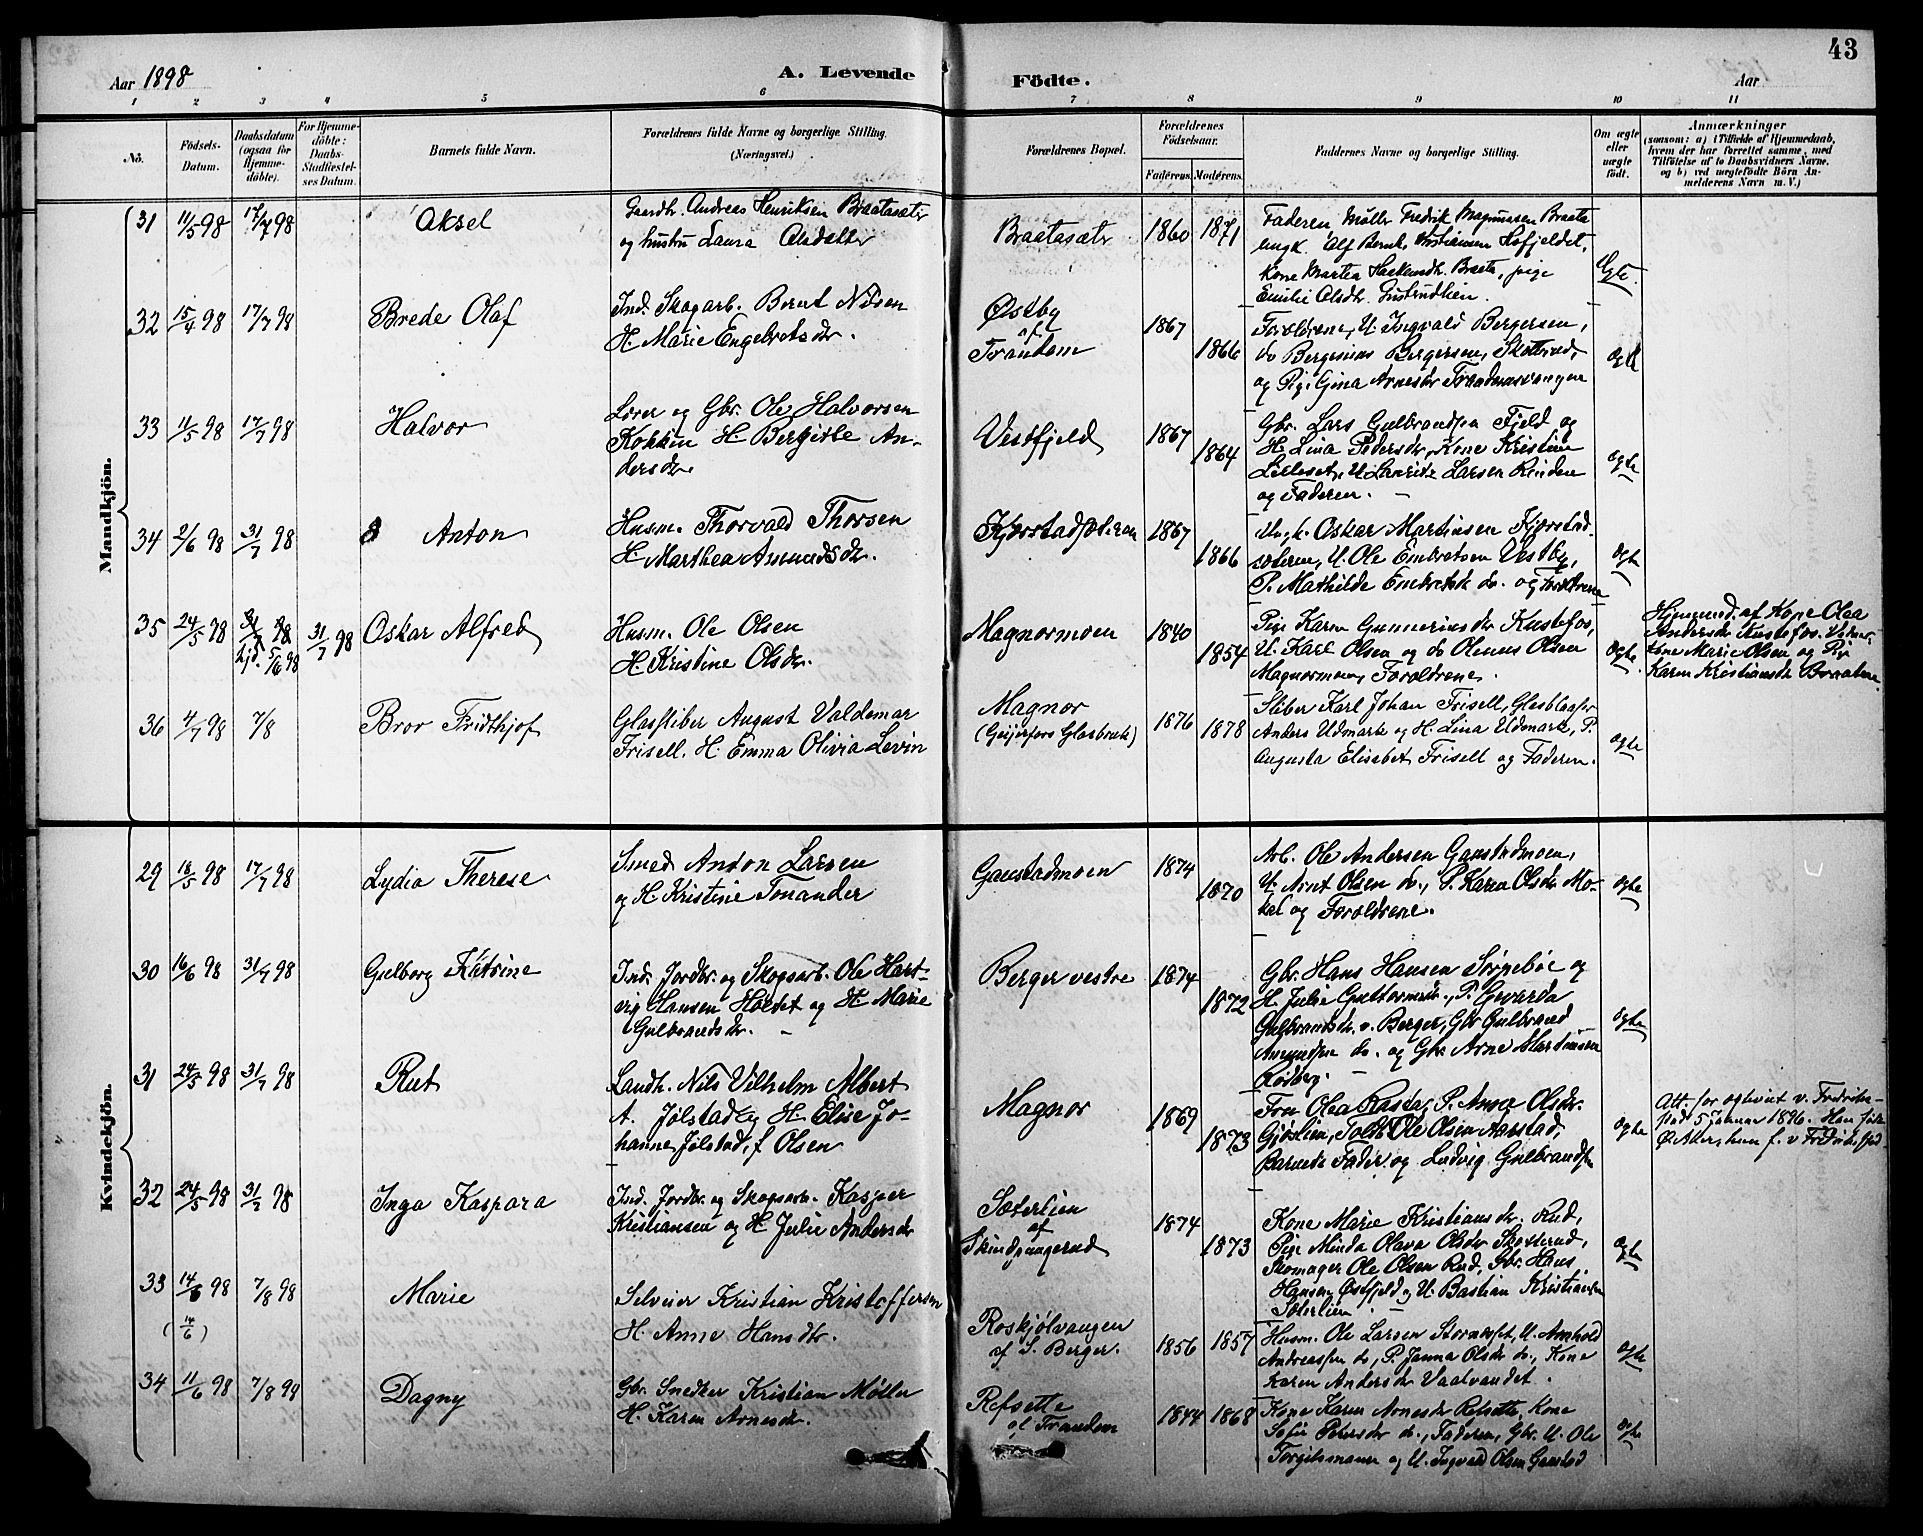 43
Aar 1898
A. Levende Födte.
Aar
1 2 3 4 5 6 7 8 9 10 11
No.
Födsels-
Datum.
Daabsdatum
(ogsaa for
Hjemme-
döbte).
For Hjemme-
döbte:
Daabs-
Stadfæstel-
ses Datum.
Barnets fulde Navn.
Forældrenes fulde Navne og borgerlige Stilling.
(Næringsvei.)
Forældrenes Bopæl.
Forældrenes
Födselsaar.
Faderens. Moderens.
Faddernes Navne og borgerlige Stilling.
Om ægte
eller
uægte
födt.
Anmærkninger
(saasom: a) i Tilfælde af Hjemmedaab,
hvem der har forrettet samme, med
Tilföielse af to Daabsvidners Navne,
og b) ved uægtefödte Börn An-
melderens Navn m. V.)
Mandkjön.
31 11/5 98 17/7 98
Aksel
Gaardbr. Andreas Henriksen Braatasæter
og hustru Laura Olsdatter
Braatasæter
1860 1871
Faderen Møller Fredrik Magnussen Braata
ungk. Alf Bernh. Kristiansen
Kone Martea Braata, pige
Emilie Olsdtr.
Egte.
32 15/4 98 17/7 98
Brede Olaf
Ind. Skogarb. Bernt Nilsen
H. Marie Engebretsdr.
Østby
af
Trandem
1867
1866
Forældrene, U. Ingvald Bergersen,
do Bergesius Bergersen, Skotterud,
og Pige Gina Arnesdr Trandemsvangen
ægte
33 11/5 98 17/7 98
Halvor
Lærer og Gbr. Ole Halvorsen
Kokkin H. Bergitte An-
dersdr.
Vestfjeld
1867
1864
Gbr. Lars Gulbrandsen Fjeld og
H. Lina Pedersdr, Kone Kristine
Lilleset, U. Lauritz Larsen Rinden
og Faderen.
ægte
34 2/6 98 31/7 98
Anton
Husm. Thorvald Thorsen
H. Marthea Amundsdr.
Kjerstadsæteren
1867
1866
Ungk. Oskar Martinsen Kjerstad-
sæteren, U. Ole Embretsen Vestby,
P. Mathilde Embretsdr do. og Forældrene
ægte
35 24/5 98 31/7 98 31/7 98
hjd. 5/6 98
Oskar Alfred
Husm. Ole Olsen
H. Kristine Olsdr.
Magnormoen
1840
1854
Pige Karen Gunneriusdr Kustefos,
U. Karl Olsen og do Olenus Olsen
Magnormoen, Forældrene.
ægte
Hjemmed. af Kone Olea
Andersdr Kustefos. Vidner:
Kone Marie Olsen og Pige
Karen Kristiansdr Braaten.
36 4/7 98 7/8
Bror Fridthjof
Glassliber August Valdemar
Frisell. H. Emma Olivia Levin
Magnor
(Geijerfors Glasbruk)
1876 1878
Sliber Karl Johan Frisell, Glasblaaser
Anders Udmark og H. Lina Udmark, P.
Augusta Elisabet Frisell og Faderen.
ægte
Kvindekjön.
29 18/5 98 17/7 98
Lydia Therese
Smed Anton Larsen
og H. Kristine Tonander
Gaustadmoen
1874
1870
Arb. Ole Andersen Gaustadmoen,
U. Arnt Olsen do., P. Karen Olsdr Mo-
og Forældrene.
ægte
30 16/6 98 31/7 98
Gulborg Katrine
Ind. Jordbr. og Skogsarb. Ole Hart-
vig Hansen Holtet og H. Marie
Gulbrandsdr.
Berger vestre
1874
1872
Gbr. Hans Hansen Sørnebøe og
H. Julie Guttormsdr., P. Gevarda
Gulbrandsdr. v. Berger, Gbr Gulbrand
Amundsen do. og Gbr. Arne Martinsen
Rødberg.
ægte
31 24/5 98 31/7 98
Rut
Landh. Nils Vilhelm Albert
A. Jølstad og H. Elise Jo-
hanne Jølstad, f. Olsen
Magnor
1869
1873
Fru Olea Rasta, P. Anna Olsdr.
Gjøslien, Ole Olsen Aarstad,
Barnets Fader og Ludvig Gulbrandsen
ægte
Att. for v. Fredrik-
stad 5 Januar 1896. Han født
32 24/5 98 31/7 98
Inga Kaspara
Ind. Jordbr. og Skogsarb. Kasper
Kristiansen og H. Julie Andersdr
Sæterlien
af
Skindpungerud
1874
1873
Kone Marie Kristiansdr. Rud,
Pige Minda Olava Olsdr Skotterud,
Skomager Ole Olsen Rud, Gbr. Hans
Hansen Østfjeld og U. Bastian Kristiansen
Sæterlien.
ægte
33 14/6 98 7/8 98
(14/6)
Marie
Selveier Kristian Kristoffersen
H. Anne Hansdr.
Roskjølvangen
af S. Berger.
1856 1857
Husm. Ole Larsen U. Arnhold
Andreassen do, P. Janna Olsdr do., Kone
Karen Andersdr Vaalvandet.
ægte
34 11/6 98 7/8 98
Dagny
Gbr. Snedker Kristian Møller
H. Karen Arnesdr.
Refsette
af Trandem
1844 1868
Kone Karen Arnesdr Refsette, Kone
Sofie Petersdr do., Faderen, Gbr. U. Ole
Torgilsmann og U. Ingvald Olsen Gaustad
ægte